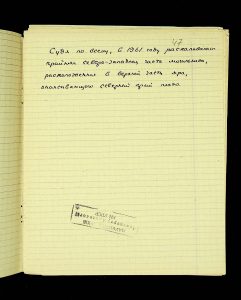 47
Судя по всему, в 1961 году раскапывалась
крайняя северо-западная часть могильника,
расположенная в верхней части яра,
опоясывающего северный край плато